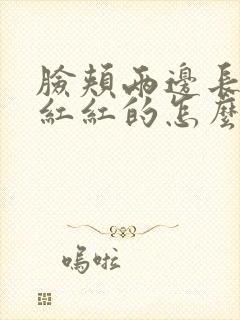 臉頰兩邊長
紅紅的怎麼
嗚啦